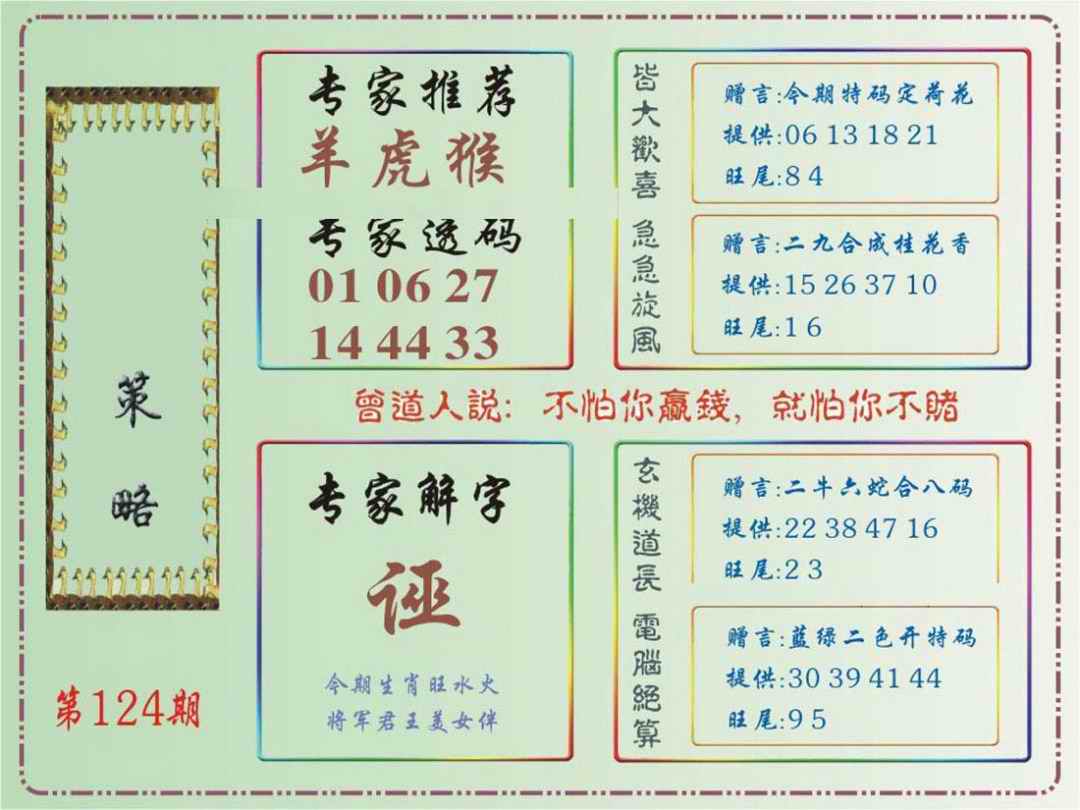 策略
第124期
专家推荐
羊虎猴
专家透码
01 06 27
14 44 33
皆大歡喜
赠言:今期特码定荷花
提供:06 13 18 21
旺尾:8 4
急急旋風
赠言:二九合成桂花香
提供:15 26 37 10
旺尾:1 6
曾道人説: 不怕你赢錢, 就怕你不賭
专家解字
诬
今期生肖旺水火
将军君王美女伴
玄機道長
赠言:二牛六蛇合八码
提供:22 38 47 16
旺尾:2 3
電腦絕算
赠言:蓝绿二色开特码
提供:30 39 41 44
旺尾:9 5